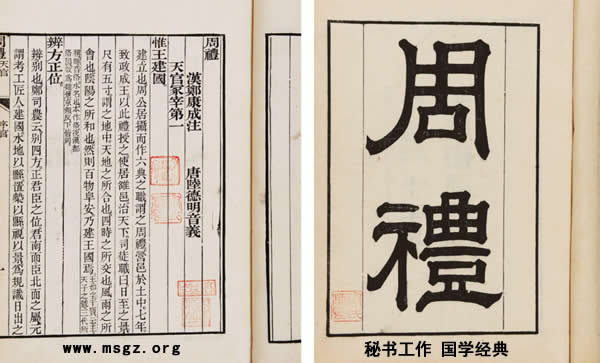 周禮
漢鄭康成注　唐陸德明音義
天官冢宰第一
惟王建國
建立也周公居攝而作六典之職謂之周禮營邑於土中七年
致政成王以此禮授之使居雒邑治天下司徒職曰日至之景
尺有五寸謂之地中天地之所合也四時之所交也風雨之所
會也陰陽之所和也然則百物阜安乃建王國焉
辨方正位
辨别也鄭司農云别四方正君臣之位君南面臣北面之屬玄
謂考工匠人建國水地以縣置槷以縣視以景爲規識日出之
周禮 天官 序官 一
周禮
www.msgz.org
秘书工作 国学经典